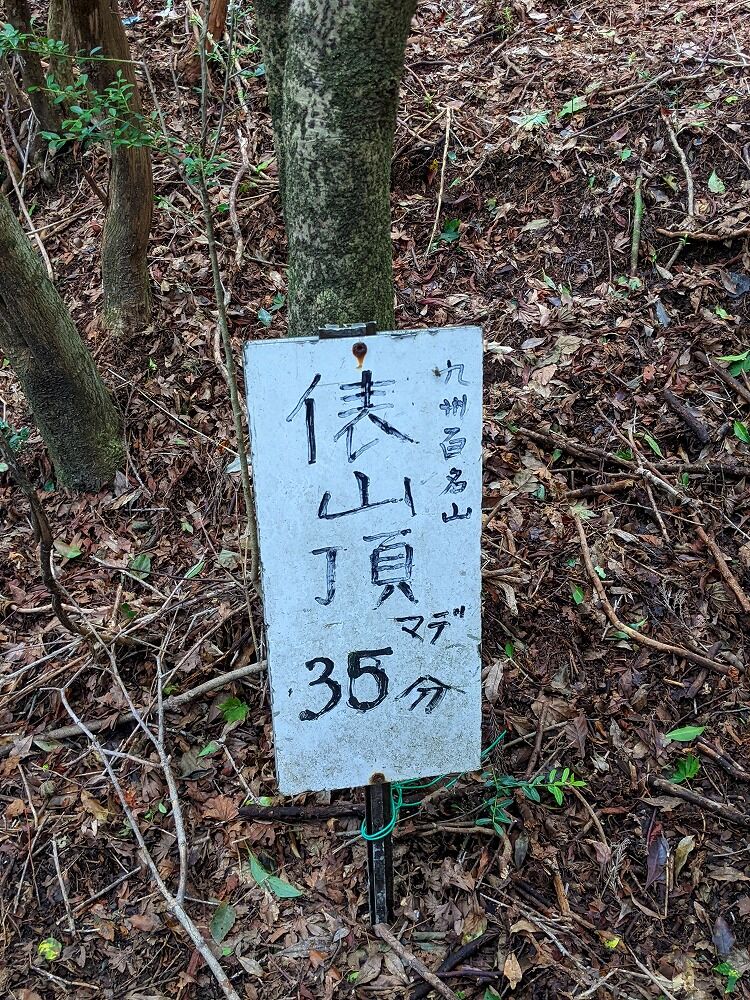 九州百名山
俵山頂
マデ
35分